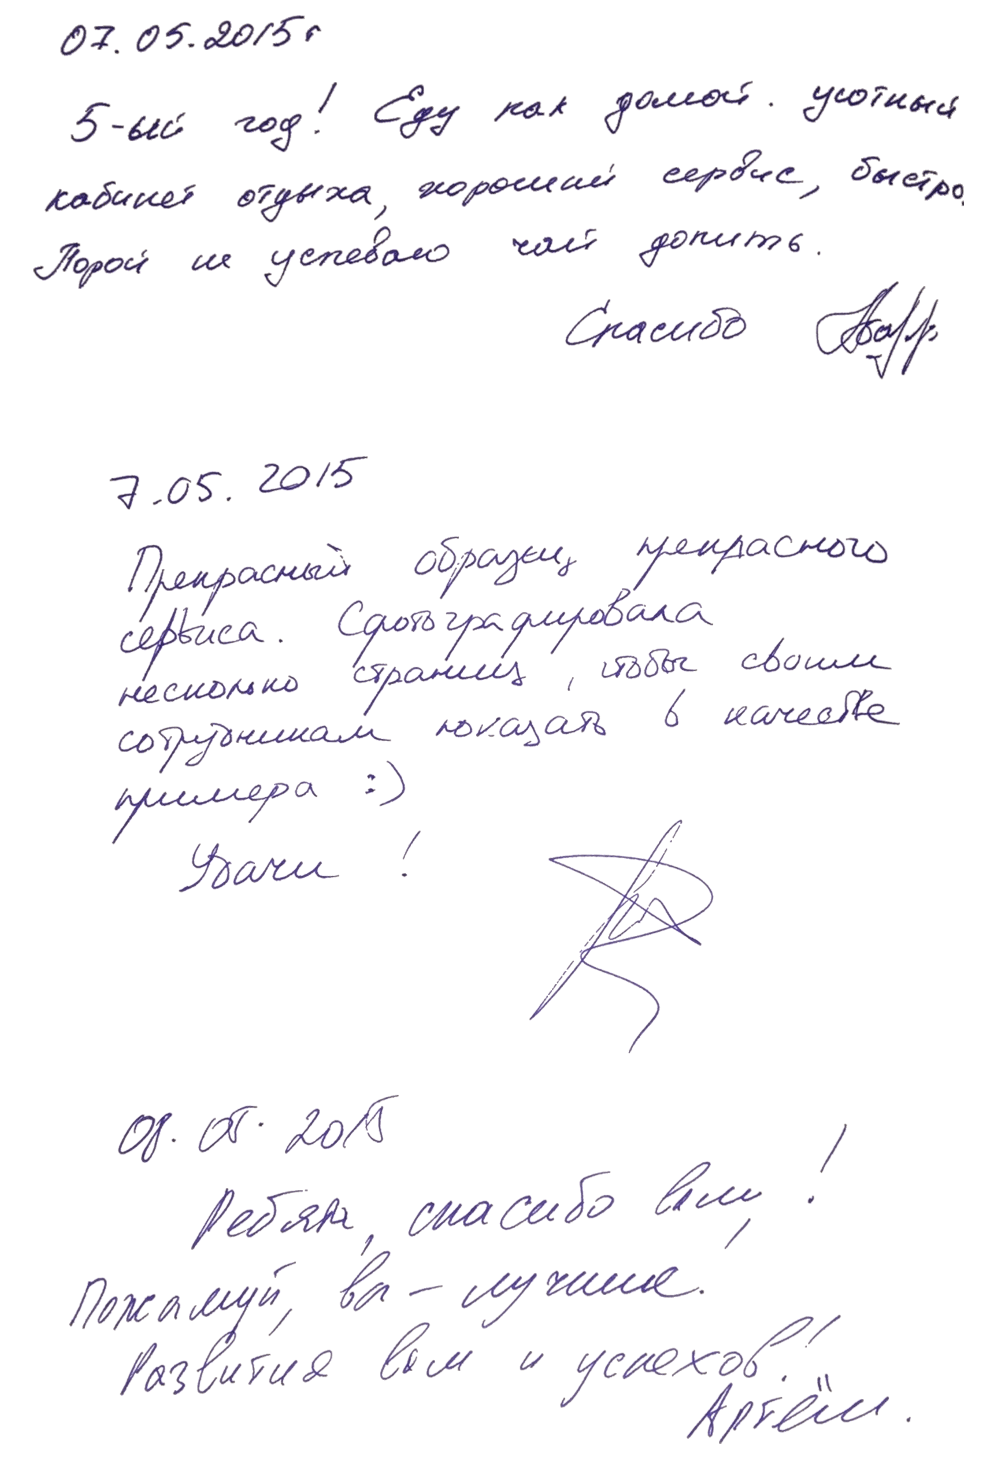 07.05.2015г
5-ый год! Еду как домой. уютный
кабинет отдыха, хороший сервис, быстро.
Порой не успеваю чай допить.
Спасибо
7.05.2015
Прекрасный образец прекрасного
сервиса. Сфотографировала
несколько страниц, чтобы своим
сотрудникам показать в качестве
примера :)
Удачи!
08.05.2015
Ребята, спасибо вам!
Пожалуй, вы - лучшие!
Развития вам и успехов!
Артём.